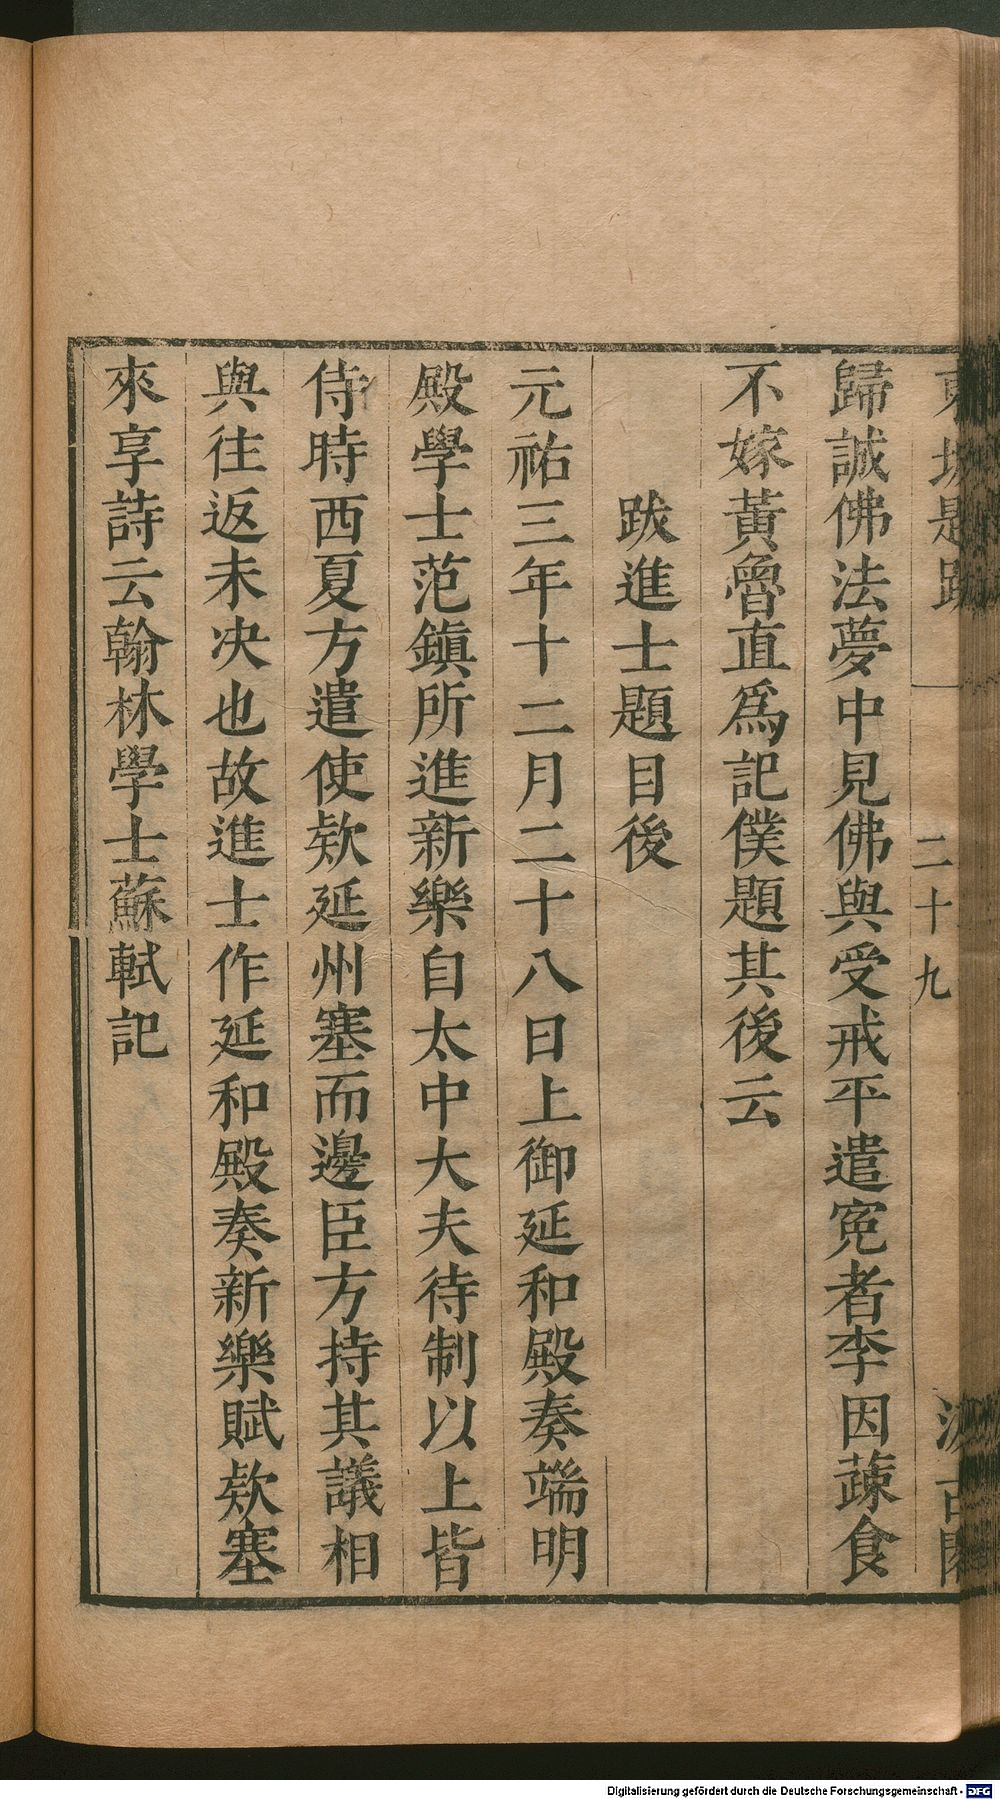 東坡題跋 二十九 汲古閣
歸誠佛法夢中見佛與受戒平遣寃者李因蔬食
不嫁黃魯直爲記僕題其後云
跋進士題目後
元祐三年十二月二十八日上御延和殿奏端明
殿學士范鎮所進新樂自太中大夫待制以上皆
侍時西夏方遣使欵延州塞而邊臣方持其議相
與往返未決也故進士作延和殿奏新樂賦欵塞
來享詩云翰林學士蘇軾記
Digitalisierung gefördert durch die Deutsche Forschungsgemeinschaft - DFG